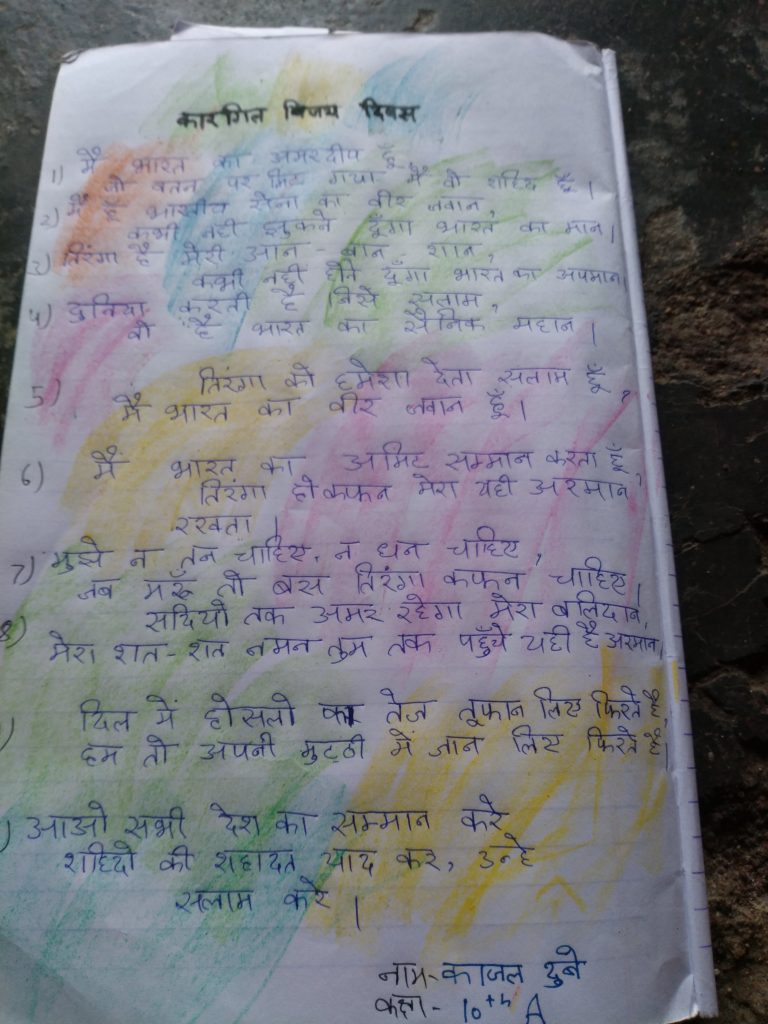 कारगिल विजय दिवस
1) मैं भारत का अमरदीप हूँ
जो वतन पर मिट गया मैं वो शहिद हूँ।
2) मैं हूँ भारतीय सेना का वीर जवान,
कभी नही झुकने दूँगा भारत का मान।
3) तिरंगा है मेरी आन - बान शान,
कभी नही होने दूँगा भारत का अपमान।
4) दुनिया करती है जिसे सलाम,
वो है भारत का सैनिक महान।
5) तिरंगा को हमेशा देता सलाम हूँ,
मैं भारत का वीर जवान हूँ।
6) मैं भारत का अमिट सम्मान करता हूँ,
तिरंगा हो कफन मेरा यही अरमान
रखता।
7) मुझे न तन चाहिए, न धन चाहिए,
जब मरूँ तो बस तिरंगा कफन चाहिए।
8) सदियो तक अमर रहेगा मेरा बलिदान,
मेरा शत-शत नमन तुम तक पहुँचे यही है अरमान।
) दिल में होसलो का तेज तूफान लिए फिरते है,
हम तो अपनी मुट्ठी में जान लिए फिरते है।
) आओ सभी देश का सम्मान करे
शहिदो की शहादत याद कर, उन्हे
सलाम करे।
नाम- काजल दुबे
कक्षा - 10th A